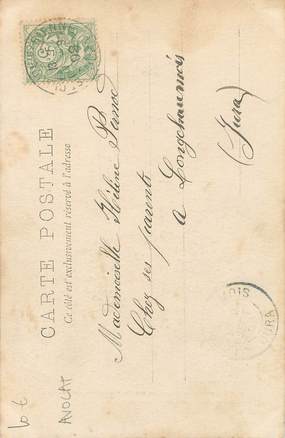 CARTE POSTALE
Ce côté est exclusivement réservé à l'adresse
Mademoiselle Hélène
Chez ses parents
a Longchaumois
(Jura)
AVOCAT